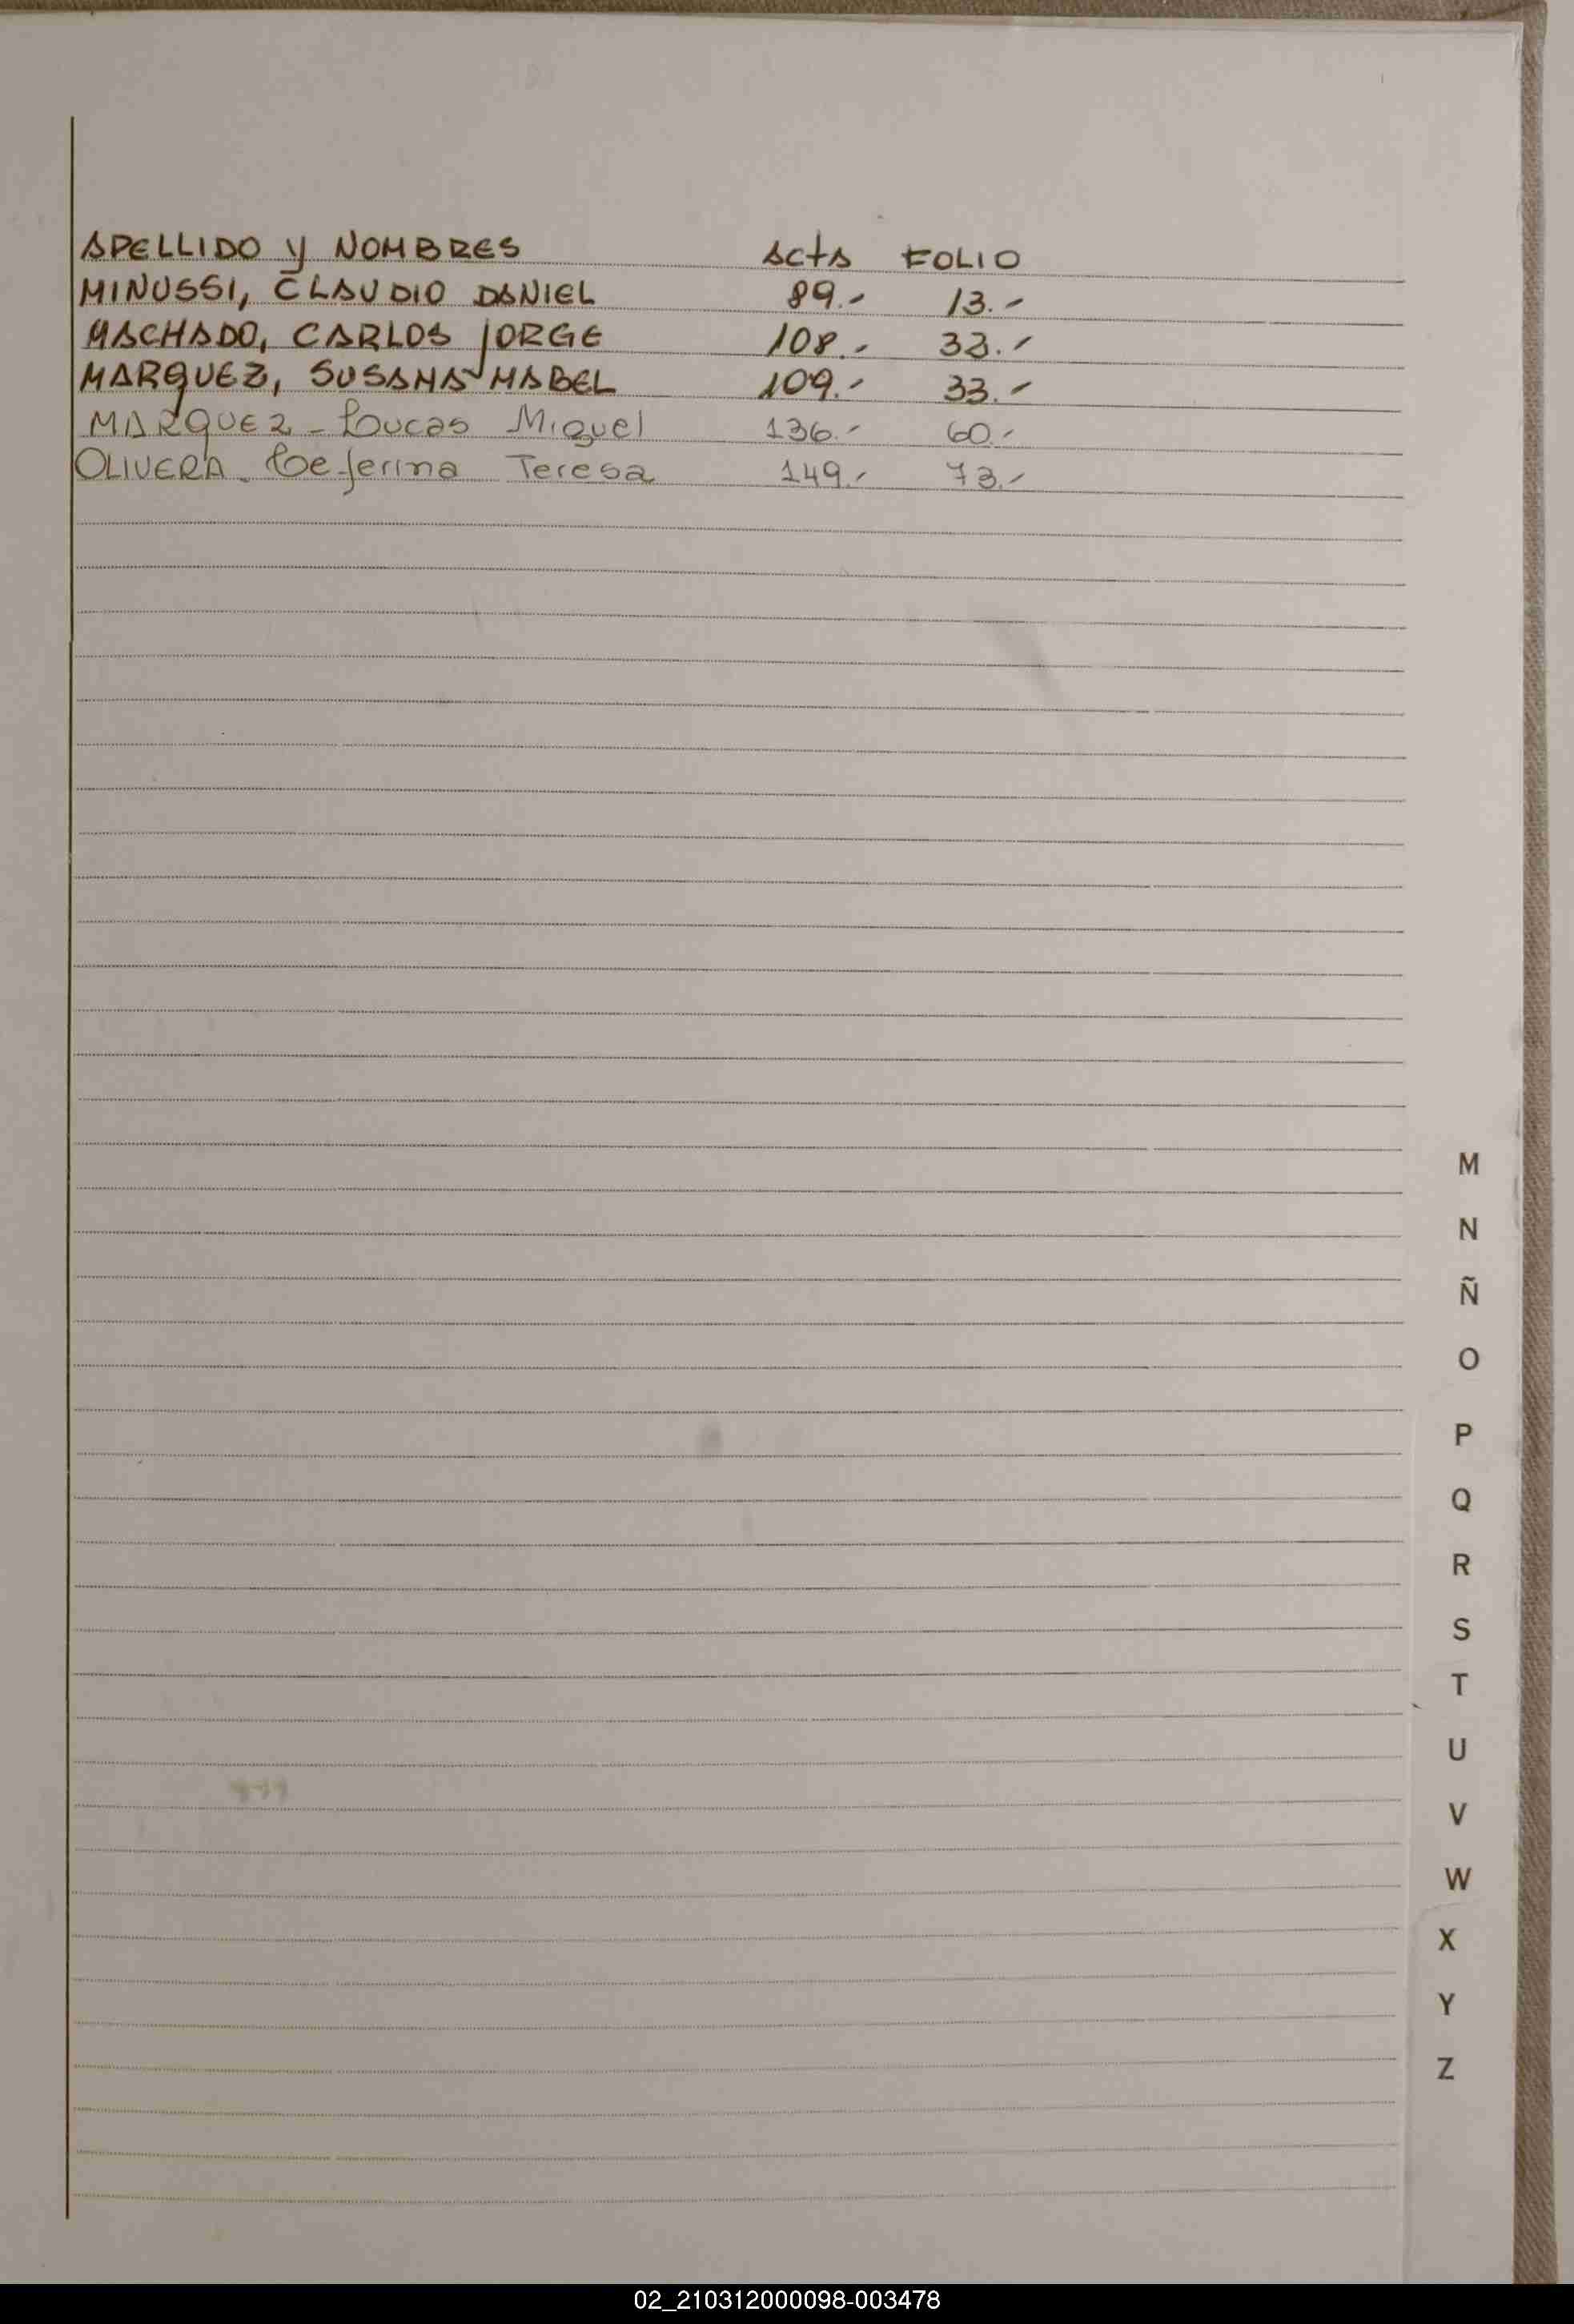 APELLIDO Y NOMBRES ACTA FOLIO
MINUSSI, CLAUDIO DANIEL 89.- 13.-
MACHADO, CARLOS JORGE 108.- 33.-
MARQUEZ, SUSANA MABEL 109.- 33.-
MARQUEZ - Lucas Miguel 136.- 60.-
OLIVERA. Ceferina Teresa 149.- 73.-
M
N
Ñ
O
P
Q
R
S
T
U
V
W
X
Y
Z
02_210312000098-003478